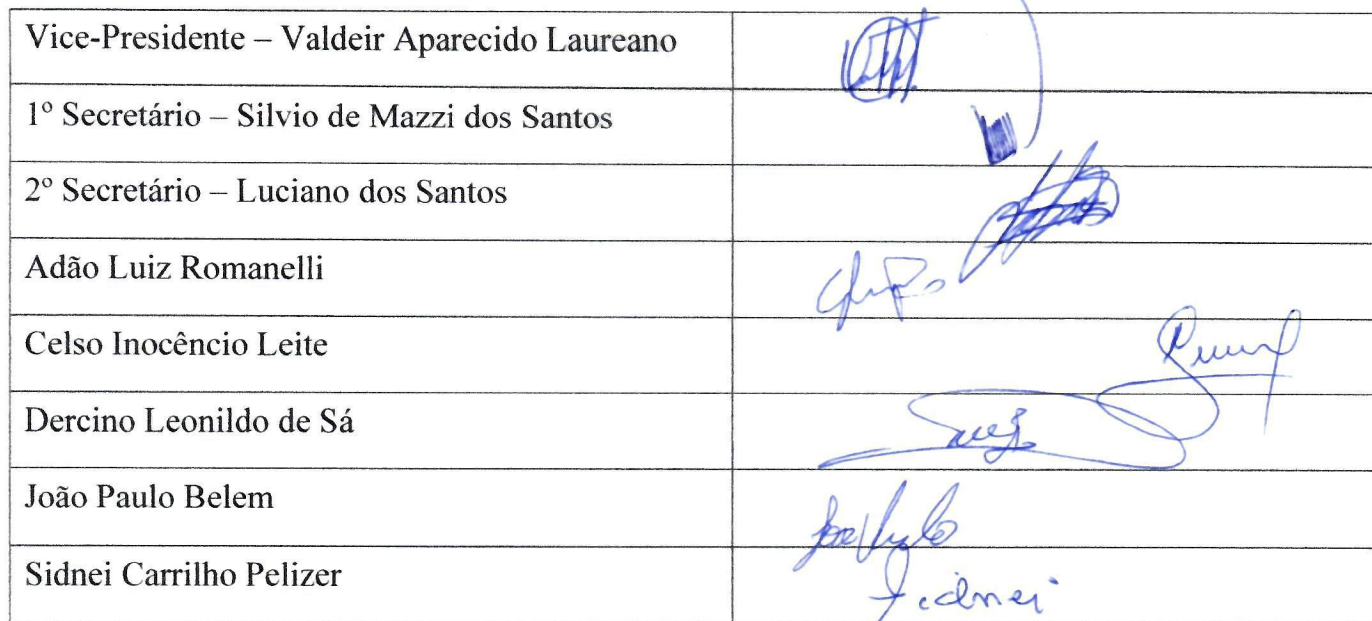 Vice-Presidente – Valdeir Aparecido Laureano
1º Secretário – Silvio de Mazzi dos Santos
2º Secretário – Luciano dos Santos
Adão Luiz Romanelli
Celso Inocêncio Leite
Dercino Leonildo de Sá
João Paulo Belem
Sidnei Carrilho Pelizer
Sidnei